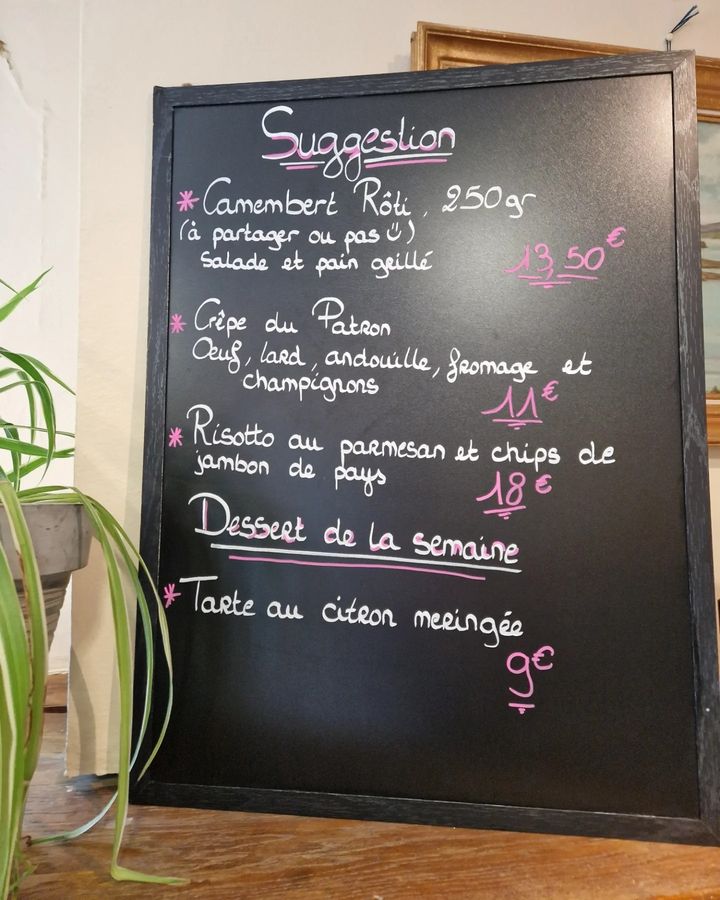 Suggestion
* Camembert Rôti, 250gr
(à partager ou pas ü)
salade et pain grillé
13,50€
* Crêpe du Patron
Œuf, lard, andouille, fromage et
champignons
11€
* Risotto au parmesan et chips de
jambon de pays
18€
Dessert de la semaine
* Tarte au citron meringée
9€